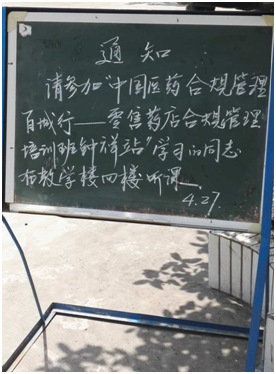 通知
请参加“中国医药合规管理
百城行——零售药店合规管理
培训班钟祥站”学习的同志
在教学楼四楼听课。
4.27.